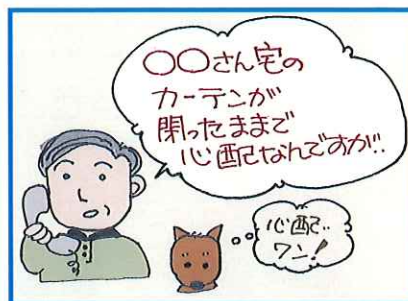 ○○さん宅の
カーテンが
閉ったままで
心配なんですが‥
心配‥
ワン！